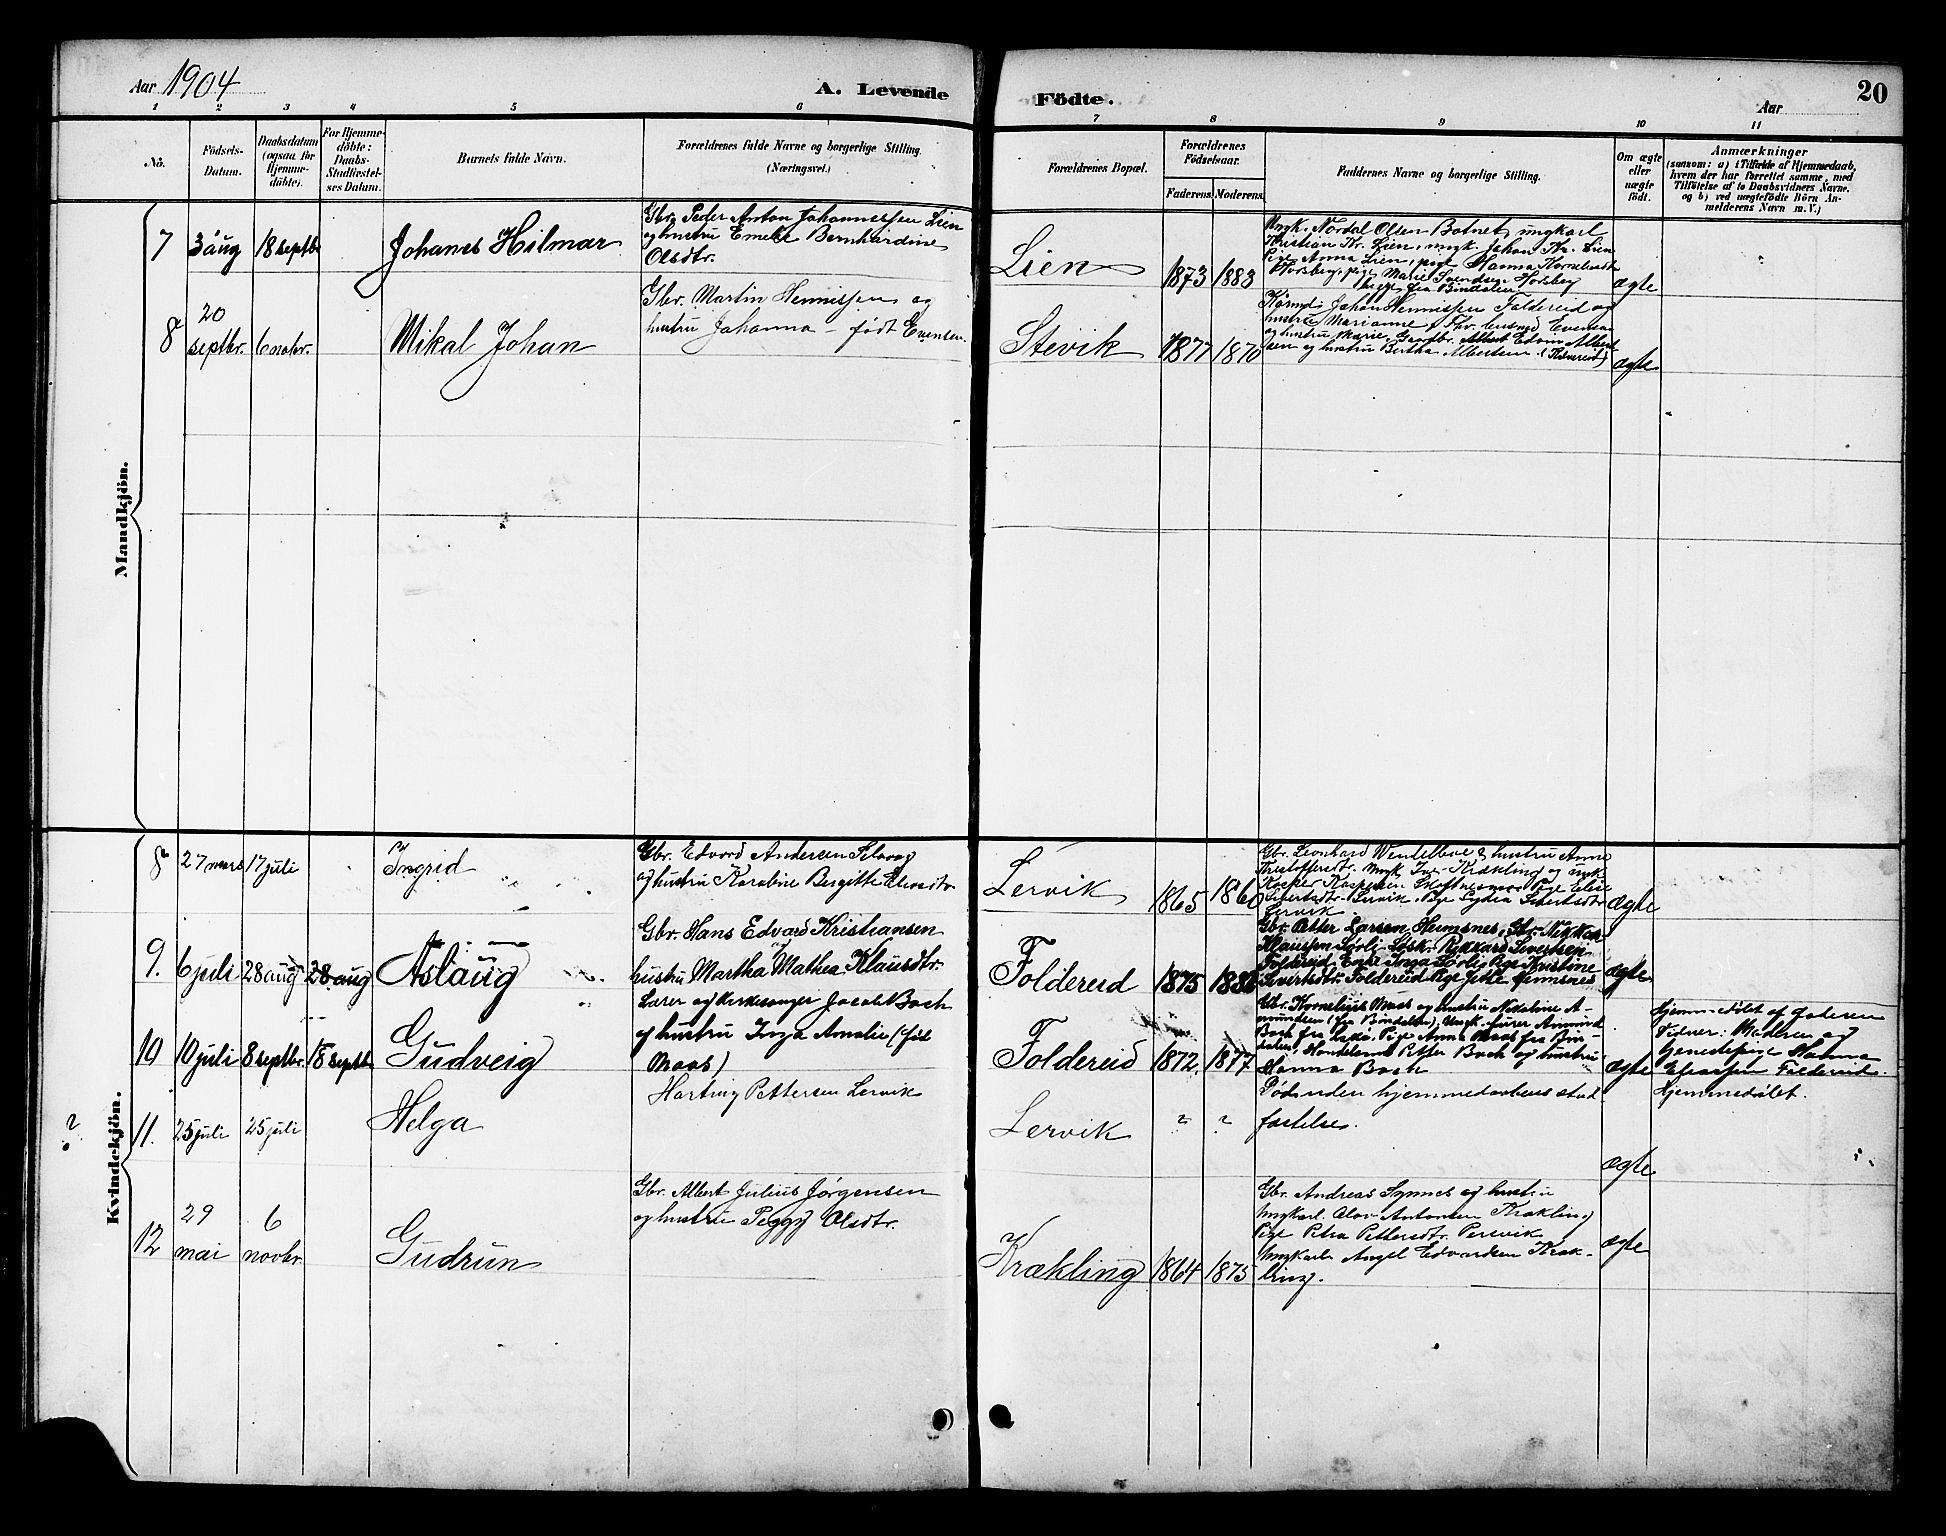 Aar 1904
A. Levende
Födte.
Aar
20
1 2 3 4 5 6 7 8 9 10 11
No.
Födsels-
Datum.
Daabsdatum
(ogsaa for
Hjemme-
döbte).
For Hjemme-
döbte:
Daabs-
Stadfæstel-
ses Datum.
Barnets fulde Navn.
Forældrenes fulde Navne og borgerlige Stilling.
(Næringsvei.)
Forældrenes Bopæl.
Forældrenes
Födselsaar.
Faderens Moderens
Faddernes Navne og borgerlige Stilling.
Om ægte
eller
uægte
födt.
Anmærkninger
(saasom: a) i Tilfælde af Hjemmedaab,
hvem der har forrettet samme, med
Tilföielse af to Daabsvidners Navne.
og b) ved uægtefödte Börn An-
melderens Navn m. V.)
Mandkjön.
7 3 aug 18 septbr Johanes Hilmar
Gbr. Peder Anton Johannessen Lien
og hustru Emelie Bernhardine
Olsdtr.
Lien 1873 1883
Ungk. Nordal Olsen Botnet, ungkarl
Kristian Kr. Lien, ungk. Johan Kr. Lien
Pige Anna Lien, pige Hanna
Horsberg, pige Marie Horsberg
fra Bindalen.
ægte
8 20
septbr. 6 nobr. Mikal Johan
Gbr. Martin Hennissen og
hustru Johanna – født Evensen.
Stevik 1877 1870
Johan Hennissen Foldereid og
hustru Marianne,
og hustru Marie, Gaardbr. Albert Edom Albert-
sen og hustru Bertha Albertsen
ægte
Kvindekjön.
8 27 mars 17 juli Ingrid
Gbr. Edvard Andersen
og hustru Karoline Birgitte
Lervik 1865 1860
Gbr. Leonhard Wendelboe & hustru Anne
Kristoffersdtr. Ungk. Krækling og ungk.
Kasper Kaspersen Pige Elise
Sivertsdtr. Lervik. Pige Lydia Sivertsdtr.
Lervik.
ægte
9. 6 juli 28 aug 28 aug Aslaug
Gbr. Hans Edvard Kristiansen og
hustru Martha Mathea Klausdtr.
Foldereid 1875
Gbr. Petter Larsen Heimsnes, Gbr.
Klaussen Sørli, Rikkard Sivertsen
Foldereid, Inga Sørli, Pige Kristine
Sivertsdtr. Foldereid, Pige Jette Heimsnes
ægte
10 10 juli 8 septbr. 18 septb. Gudveig
Lærer og Kirkesanger Jacob Bach
og hustru Inga Amalie (født
Maas)
Foldereid 1872 1877
Gbr. Kornelius Maas og hustru A-
mundsen (fra Bindalen), Ungk.
Bach fra Leka, Pige Anna Maas fra Bin-
dalen, Handelsmd. Petter Bach og hustru
Hanna Bach
ægte
Hjemmedøbt af faderen
Vidner: Moderen og
tjenestepige Hanna
Eliassen Foldereid.
? 11. 25 juli 25 juli Helga
Hartvig Pettersen Lervik
Lervik ? ?
Død uden hjemmedaabens stad-
fæstelse.
ægte
Hjemmedøbt.
12 29
mai 6
novbr. Gudrun
Gbr. Albert Julius Jørgensen
og hustru Peggy Olsdtr.
Krækling 1864 1875
Gbr. Andreas Synnes og hustru
Ungkarl. Olav Antonsen Krækling
Pige Petra Pettersdtr.
Ungkarl Angel Edvardsen Kræk-
ling.
ægte